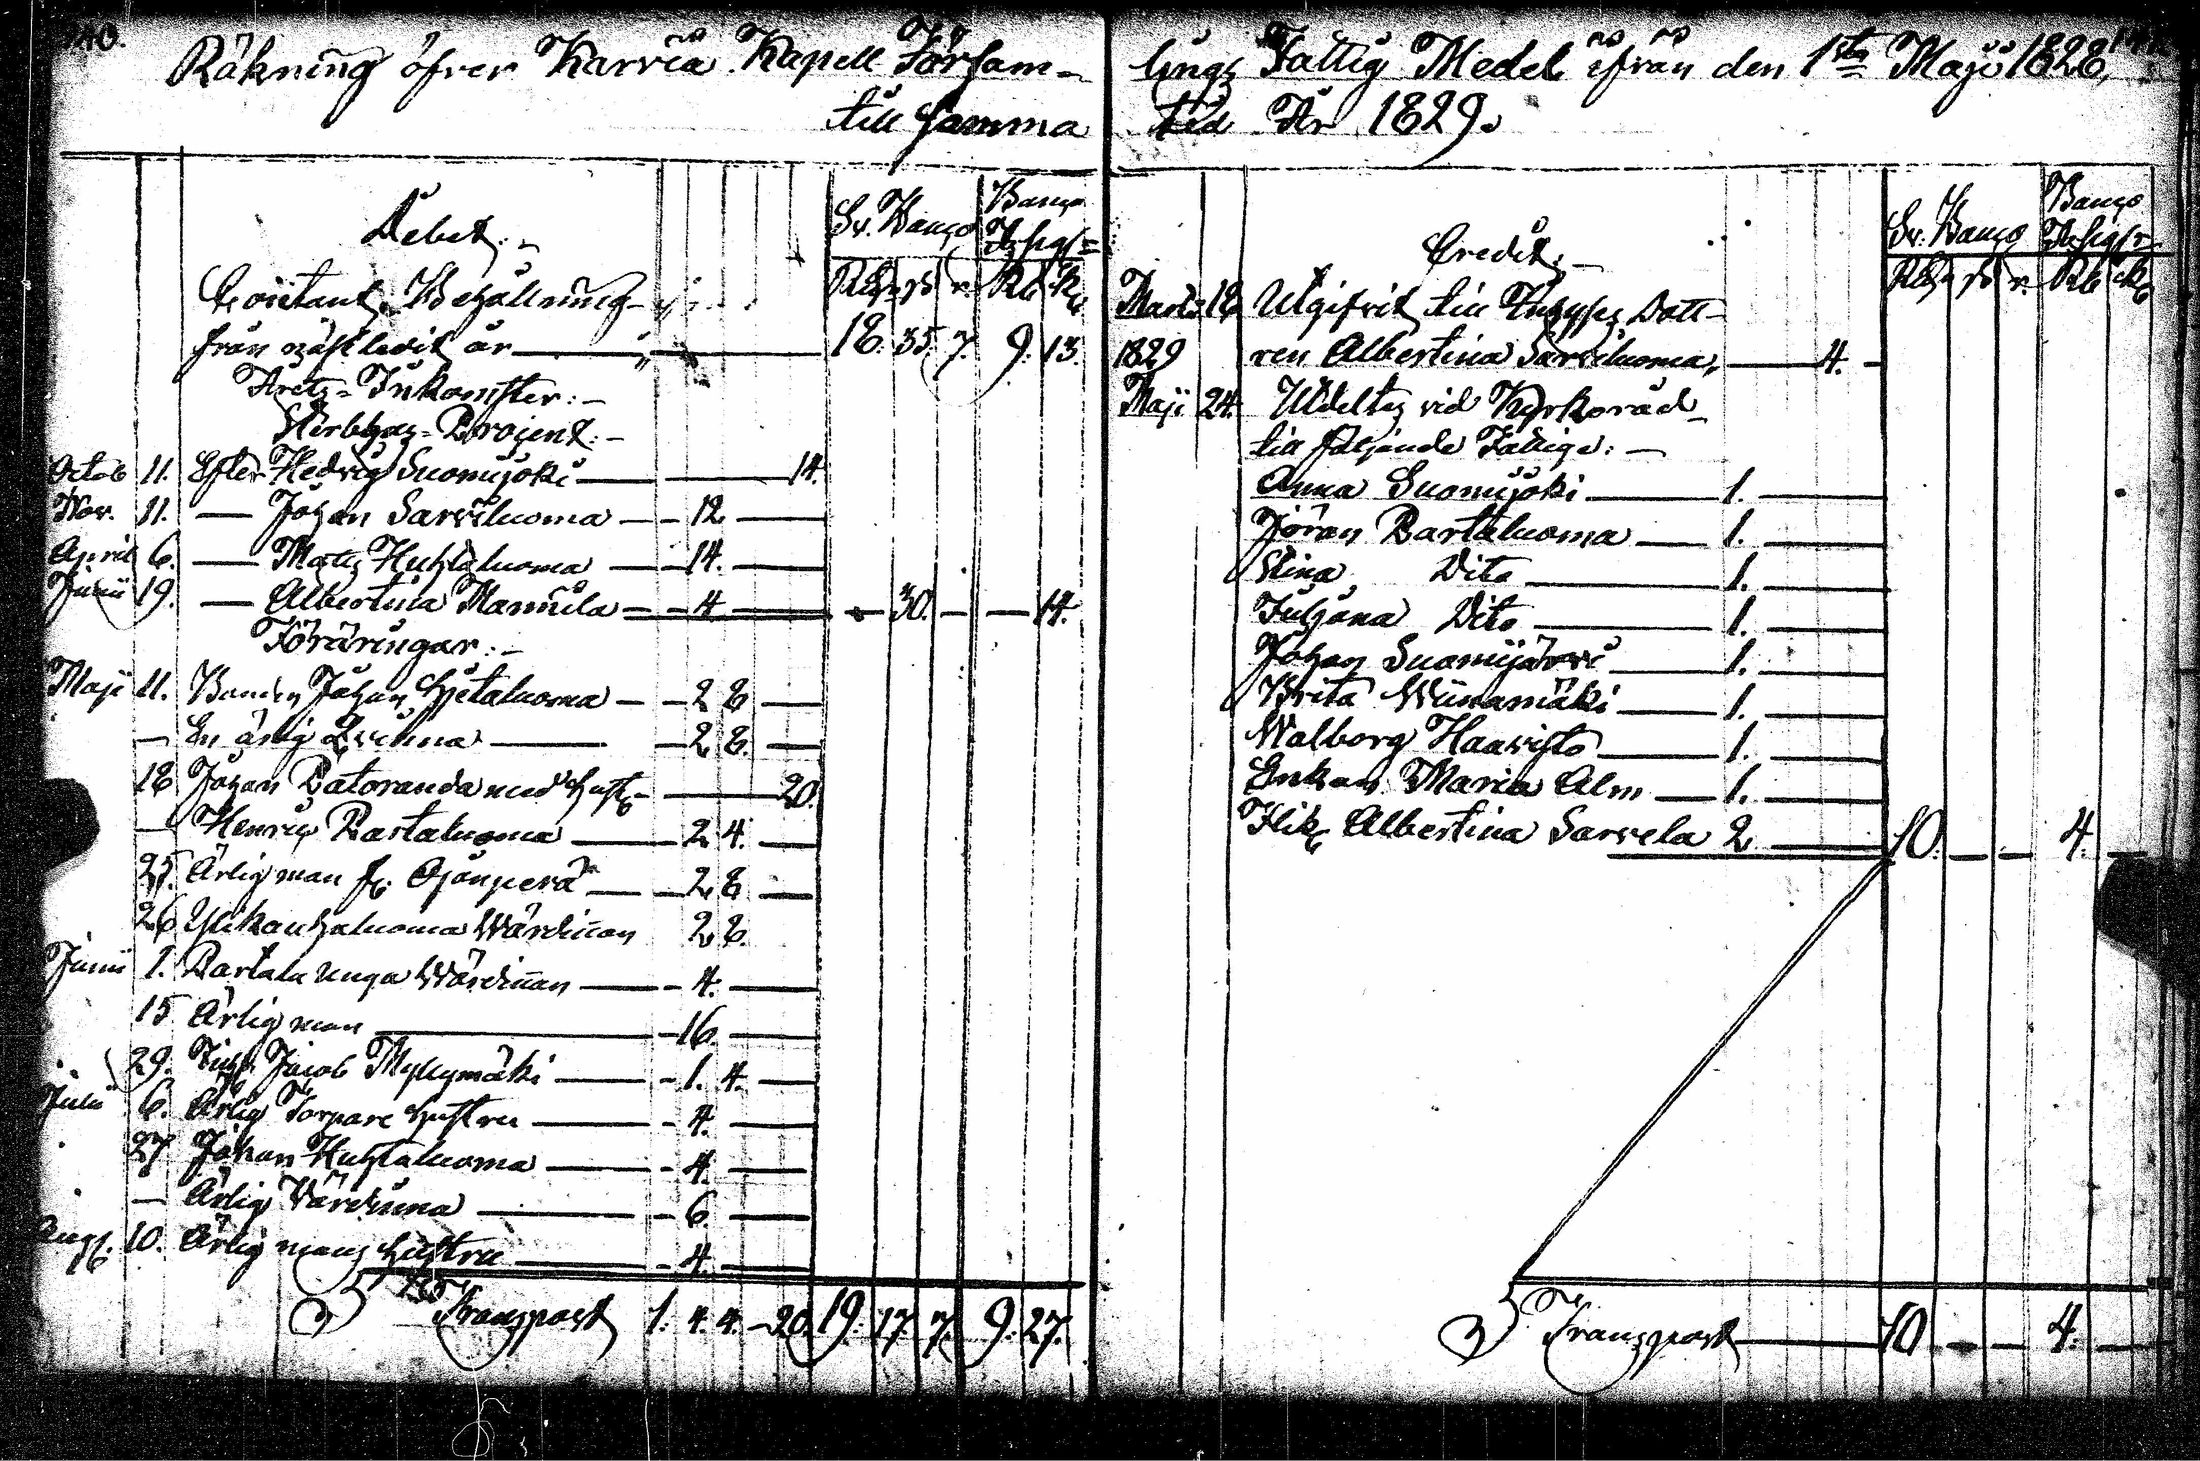 140.
Räkning öfver Karvia Kapell Församlings Fattig Medel ifrån den 1sta Maji 1828,
till samma tid År 1829.
Debet:
Sv. Banco
Banco
Rd ß r. Rb k
Contant Behållning
från nästledit år 18. 35. 7. 9. 13.
Årets Inkomster:
Sterbhus-Procent:
Octob 11. Efter Hedvig Suomijoki 14.
Nov. 11. Johan Sarviluoma 12
April 6. Matts Huhtaluoma 14.
Junii 19. Albertina Mannila 4 30. 14.
Föräringar:
Maji 11. Bonden Johan Hietaluoma 2 8
En ärlig Qvinna 2 8.
18 Johan Ratoranda med Hust. 20.
Henric Rastaluoma 2 4.
25. Ärlig man fr. Ojanperä 2 8
26 Ylikauhaluoma Wärdinnan 2 8.
Junii 1. Rastala unga Wärdinnan 4.
15 Ärlig man 16.
29. Jacob Myllymäki 1. 4.
Julii 6. Ärlig Torpare hustru 4.
27 Johan Huhtaluoma 4.
Ärlig Värdinna 6.
Aug. 10. Ärlig mans hustru 4.
Transport 1. 4. 4. 20. 19. 17. 7. 9. 27.
Credit:
Sv. Banco
Banco
Rd ß r. Rb k
Martii 18 Utgifvit till Inhyses Dott-
1829 ren Albertina Sarviluoma, 4.
Maji 24. Utdeltes vid Kyrkoråd
till följande Fattige:
Anna Suomijoki 1.
Jöran Rastaluoma 1.
Stina Dito 1.
Juljana Dito 1.
Johan Suomijärvi 1.
Brita Wiinamäki 1.
Walborg Haavisto 1.
Enkan Maria Alm 1.
Flik. Albertina Sarvela 2 10. 4.
Transport 10 4.